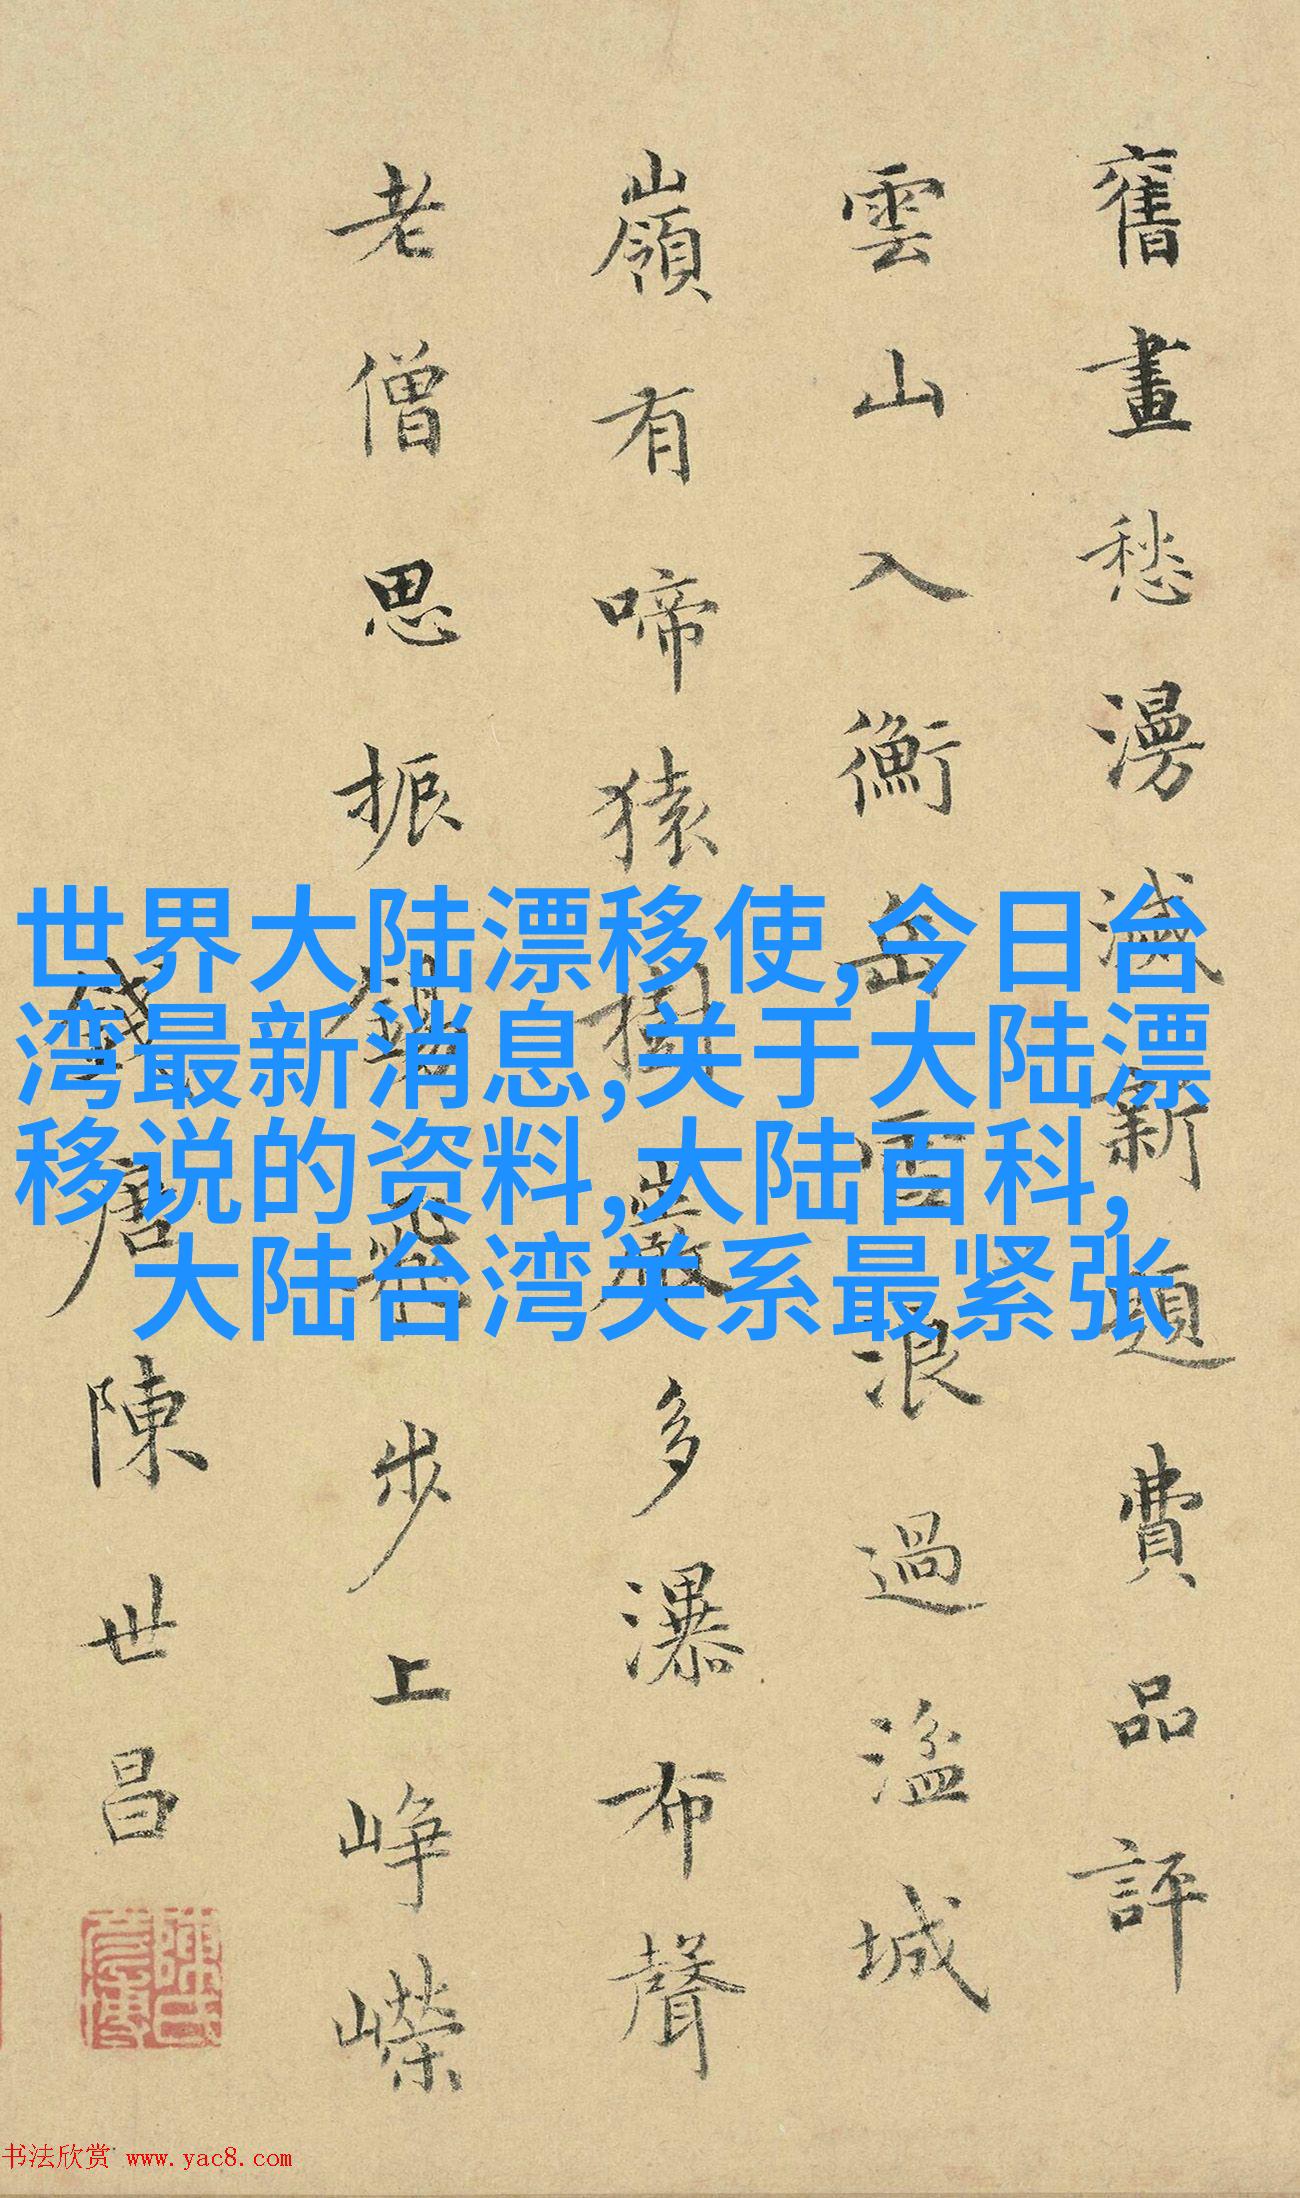 舊畫愁漫滅新題費品評
雲山入衡岳雪浪過湓城
嶺有啼猿樹巖多瀑布聲
老僧思振錫飛步上崢嶸
錢唐陳世昌
世界大陆漂移使,今日台
湾最新消息,关于大陆漂
移说的资料,大陆百科,
大陆台湾关系最紧张
书法欣赏 www.yac8.com